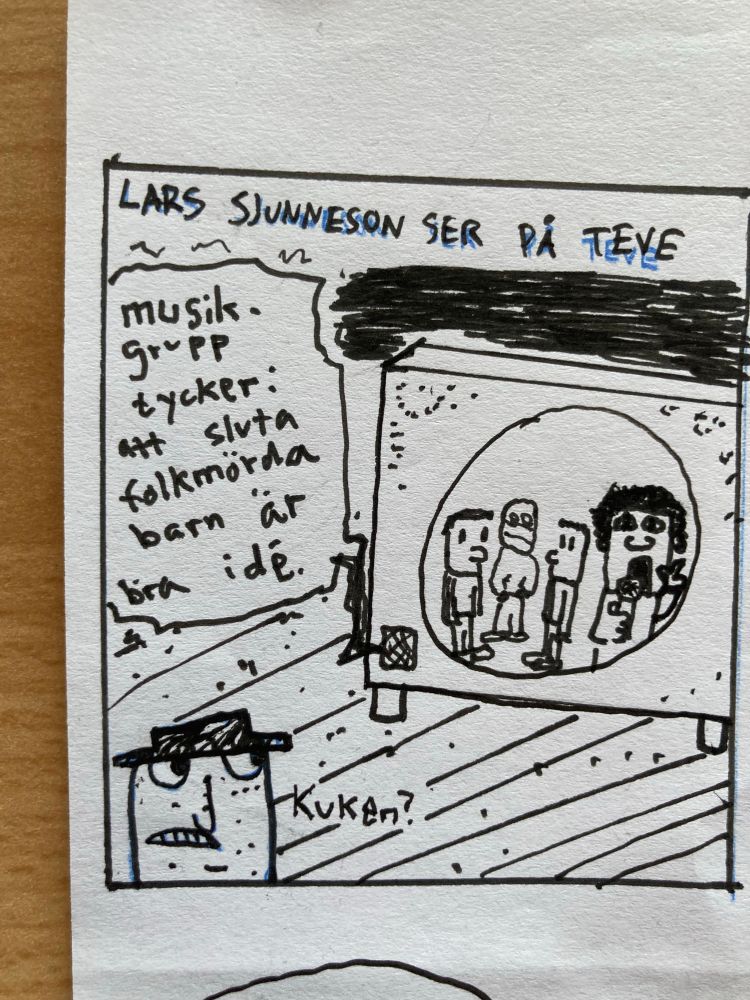 LARS SJUNNESON SER PÅ TEVE
musik-
grupp
tycker:
att sluta
folkmörda
barn är
bra idé.
Kuken?